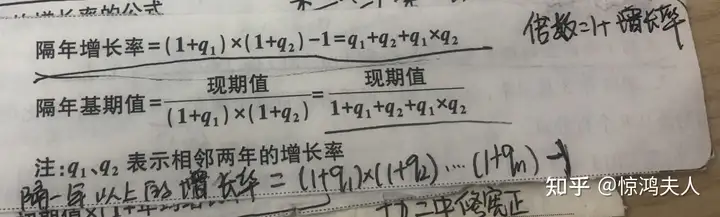 的增长率的公式
隔年增长率=(1+q₁)×(1+q₂)-1=q₁+q₂+q₁×q₂
倍数=1+增长率
隔年基期值=现期值/(1+q₁)×(1+q₂)=现期值/1+q₁+q₂+q₁×q₂
注:q₁、q₂ 表示相邻两年的增长率
隔一年以上的增长率=(1+q₁)×(1+q₂)…(1+qₙ)-1
知乎 @惊鸿夫人